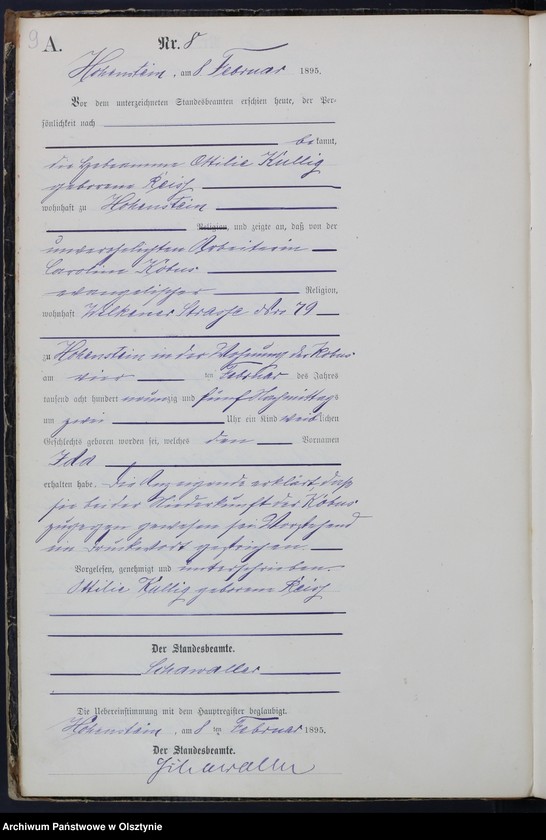 9 A.
Nr. 8
Hohenstein, am 8 Februar 1895.
Vor dem unterzeichneten Standesbeamten erschien heute, der Per-
sönlichkeit nach
bekannt,
die Hebeamme Ottilie Kullig
geborene Reiss
wohnhaft zu Hohenstein
Religion, und zeigte an, daß von der
unverehelichten Arbeiterin
Caroline Kobus
evangelischer Religion,
wohnhaft Wilkener Strasse Nro 79
zu Hohenstein in der Wohnung der Kobus
am vier ten Februar des Jahres
tausend acht hundert neunzig und fünf Nachmittags
um zwei Uhr ein Kind weiblichen
Geschlechts geboren worden sei, welches den Vornamen
Ida
erhalten habe. Die Anzeigende erklärt, daß
sie bei der Niederkunft der Kobus
zugegen gewesen sei. Vorstehend
ein Druckwort gestrichen.
Vorgelesen, genehmigt und unterschrieben.
Ottilie Kullig geborene Reiss
Der Standesbeamte.
Schawaller
Die Uebereinstimmung mit dem Hauptregister beglaubigt.
Hohenstein, am 8 ten Februar 1895.
Der Standesbeamte.
Schawaller
Archiwum Państwowe w Olsztynie